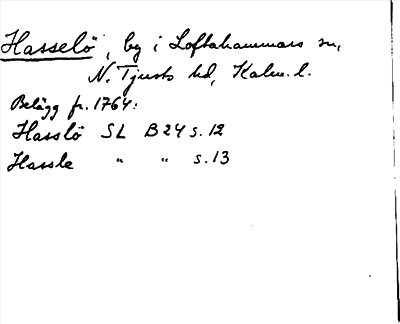 Hasselö, by i Loftahammars sn,
N. Tjusts hd, Kalm. l.
Belägg fr. 1764:
Hasslö SL B24 s. 12
Hassle " " s. 13